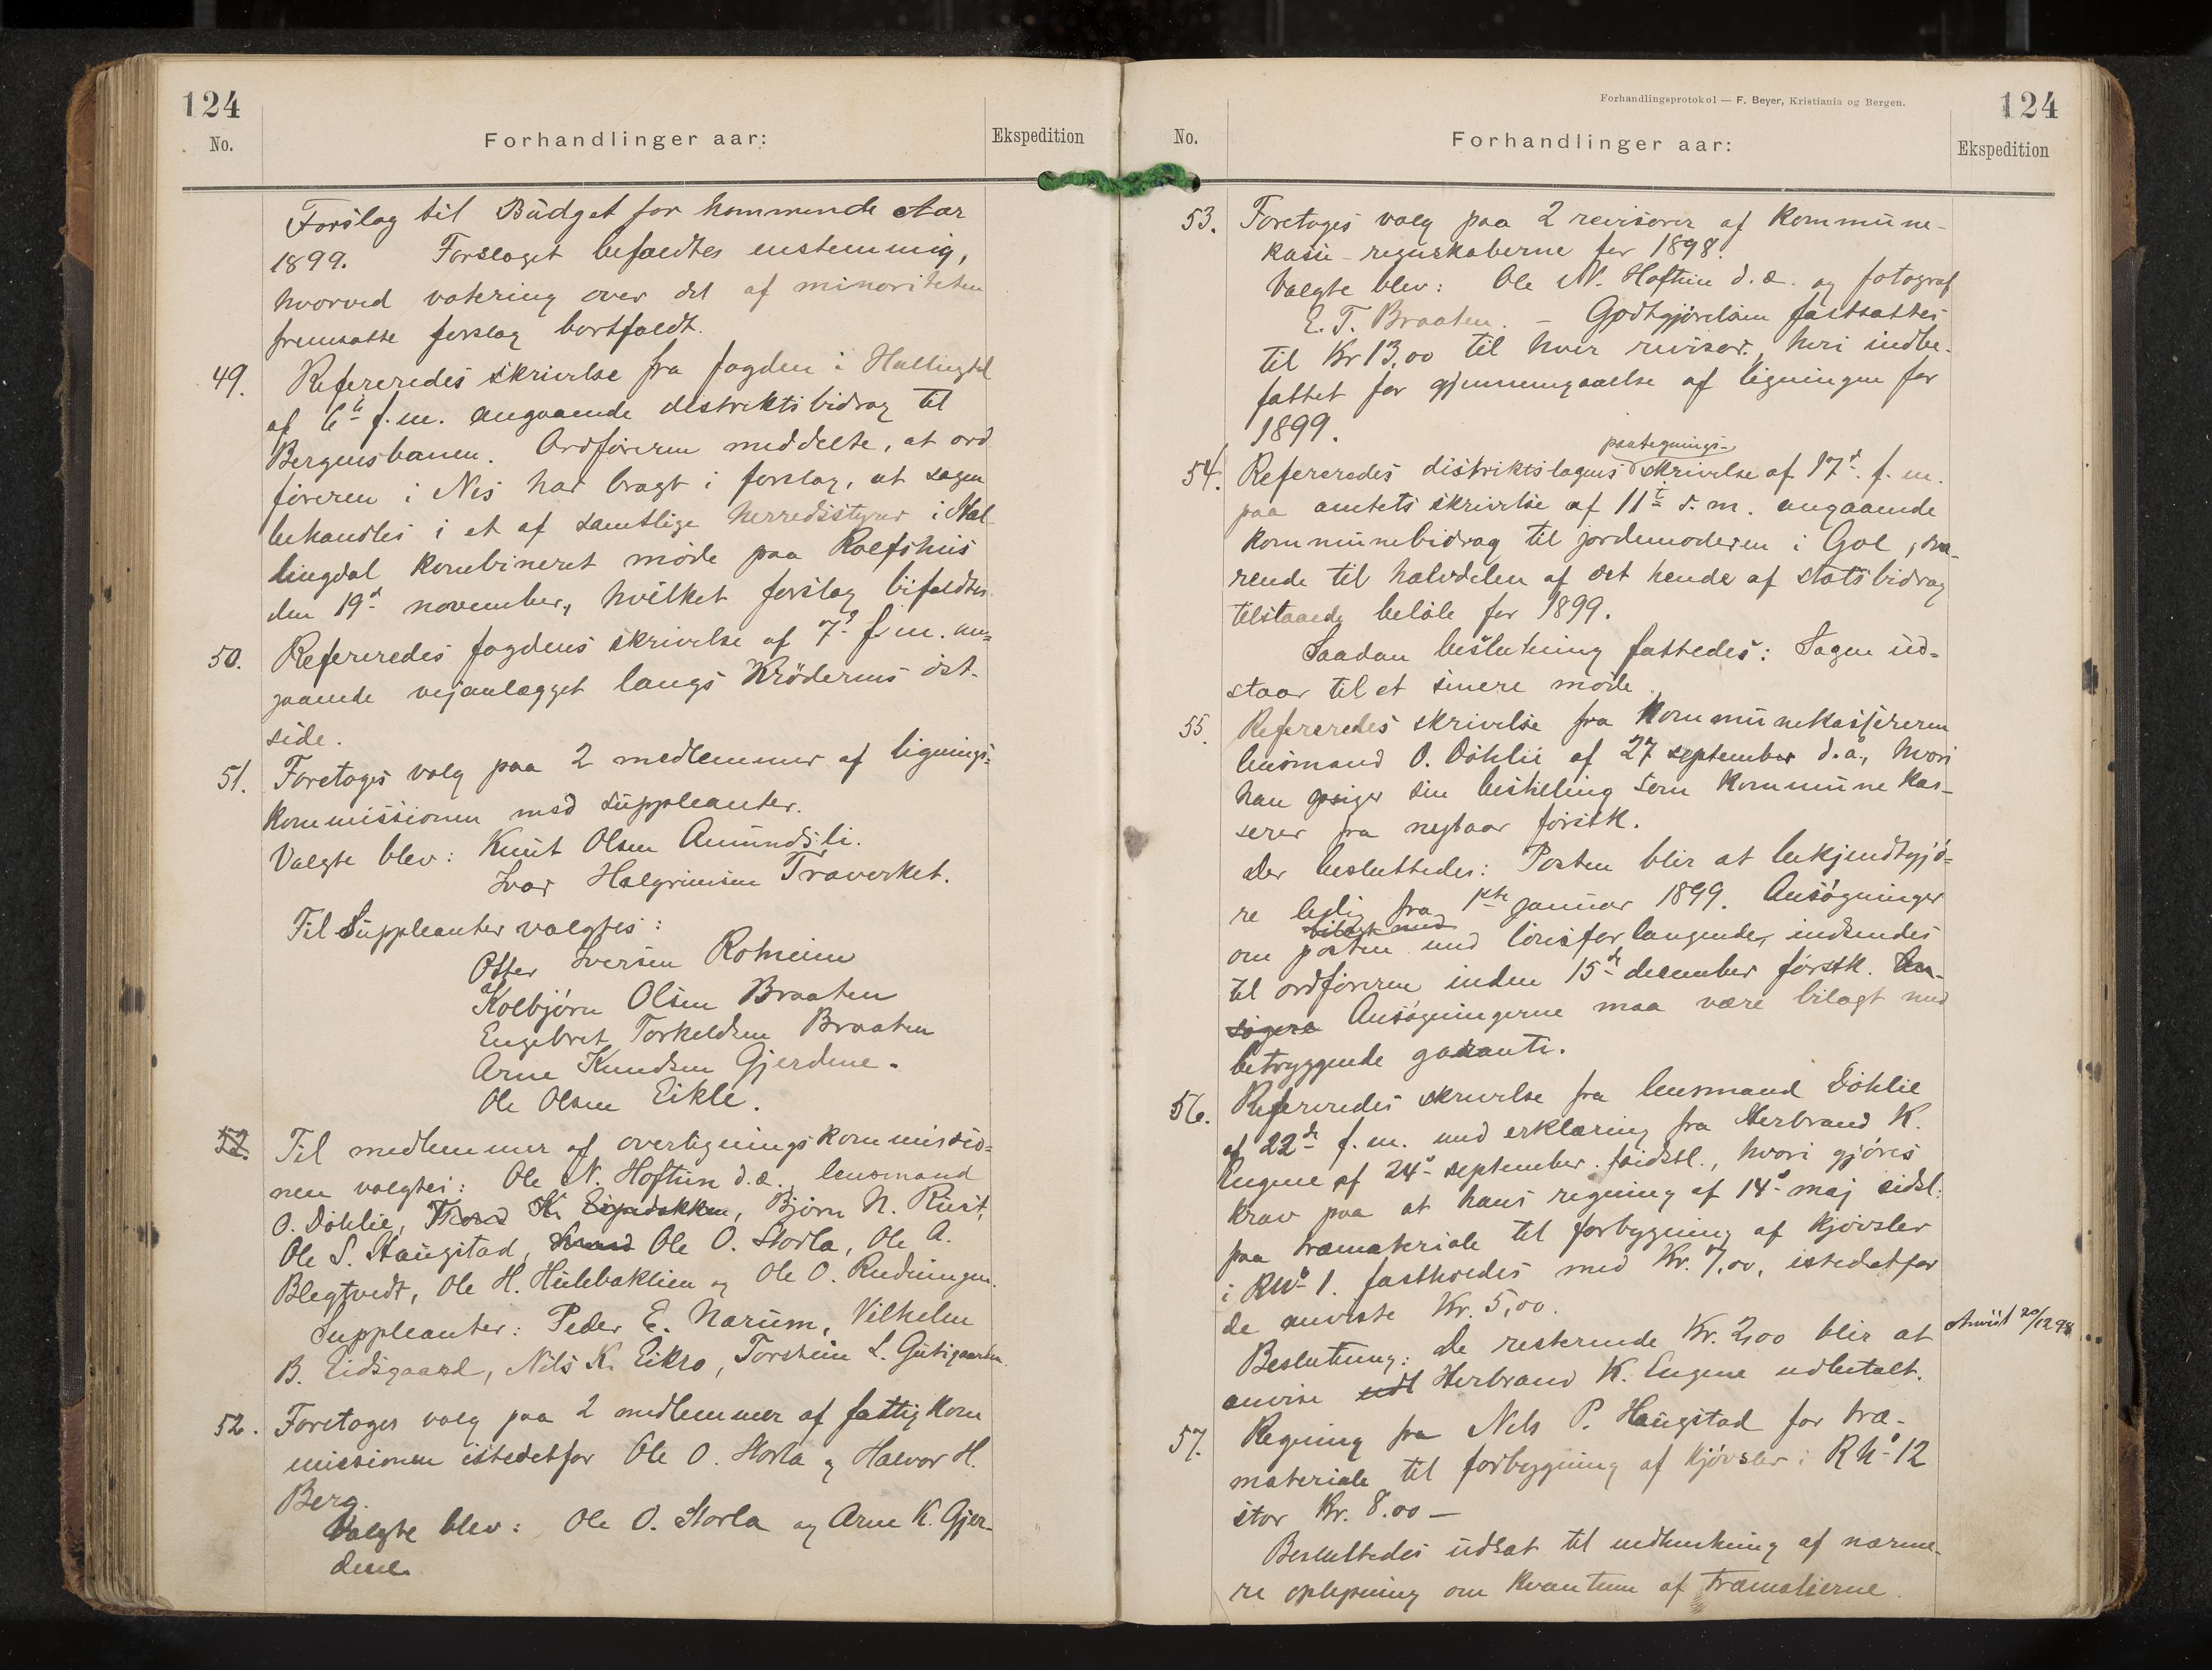 124
No.
Forhandlinger aar:
Ekspedition
Forslag til Budget for kommende Aar
1899. Forslaget bifaldtes enstemmig,
hvorved votering over det af minoriteten
fremsatte forslag bortfaldt.
49. Refereredes skrivelse fra fogden i Hallingdal
af 6te f.m. angaaende distriktsbidrag til
Bergensbanen. Ordføreren meddelte, at ord
føreren i Nes har bragt i forslag, at sagen
behandles i et af samtlige herredsstyrer i Hal-
lingdal kombineret møde paa Rolfshus
den 19d november, hvilket forslag bifaldtes.
50. Refereredes fogdens skrivelse af 7d f.m. an-
gaaende vejanlægget langs Krøderens øst-
side.
51. Foretoges valg paa 2 medlemmer af lignings-
kommissionen med suppleanter.
Valgte blev: Knut Olsen Amundsli.
Ivar Halgrimsen Traverket.
Til Suppleanter valgtes:
Otter Iversen Rotneim
Kolbjørn Olsen Braaten
Engebret Torkeldsen Braaten
Arne Knudsen Gjerdene.
Ole Olsen Eikle.
52. Til medlemmer af overligningskommissio-
nen valgtes: Ole N. Hoftun d.æ., lensmand
O. Døhlie, Trond K. Eigedokken, Bjørn N. Rust,
Ole S. Haugstad, Ole O. Storla, Ole A.
Blegtvedt, Ole H. Hulebaklien og Ole O. Rudningen.
Suppleanter: Peder E. Narum, Vilhelm
B. Eidsgaard, Nils K. Eikro, Torstein L. Gutugaarden.
52. Foretoges valg paa 2 medlemmer af fattigkom
missionen istedetfor Ole O. Storla og Halvor H.
Berg.
Valgte blev: Ole O. Storla og Arne K. Gjer-
dene.
Forhandlingsprotokol — F. Beyer, Kristiania og Bergen.
124
No.
Forhandlinger aar:
Ekspedition
53. Foretoges valg paa 2 revisorer af kommune-
kasse-regnskaberne for 1898.
Valgte blev: Ole N. Hoftun d.æ. og fotograf
E. T. Braaten. — Godtgjørelsen fastsattes
til Kr 13,00 til hver revisor, heri indbe-
fattet for gjennemgaaelse af ligningen for
1899.
paategnings-
54. Refereredes distriktslægens skrivelse af 17d f.m.
paa amtets skrivelse af 11te s.m. angaaende
kommunebidrag til jordemoderen i Gol, sva-
rende til halvdelen af det hende af statsbidrag
tilstaaede beløb for 1899.
Saadan beslutning fattedes: Sagen ud-
staar til et senere møde.
55. Refereredes skrivelse fra kommunekassereren
lensmand O. Døhlie af 27 september d.a., hvori
han opsiger sin bestilling som kommunekas-
serer fra nytaar førstk.
Der besluttedes: Posten blir at bekjendtgjø-
re ledig fra 1ste januar 1899. Ansøgninger
bilagt med
om posten med lønsforlangende, indsendes
til ordføreren inden 15de december førstk. An-
søgere Ansøgningerne maa være bilagt med
betryggende garanti.
56. Refereredes skrivelse fra lensmand Døhlie
af 22de f.m. med erklæring fra Herbrand K.
Engene af 24d september sidstl., hvori gjøres
krav paa at hans regning af 14d maj sidstl.
paa træmateriale til forbygning af kjøvsler
i RNo 1. fastholdes med Kr. 7,00, istedetfor
de anviste Kr. 5,00.
Beslutning: De resterende Kr. 2,00 blir at
anvise udt Herbrand K. Engene udbetalt.
Anvist 20/12 98
57. Regning fra Nils P. Haugstad for træ-
materiale til forbygning af kjøvsler i R No 12
stor Kr. 8.00 —
Besluttedes udsat til indhentning af nærme-
re oplysning om kvantum af træmaterne